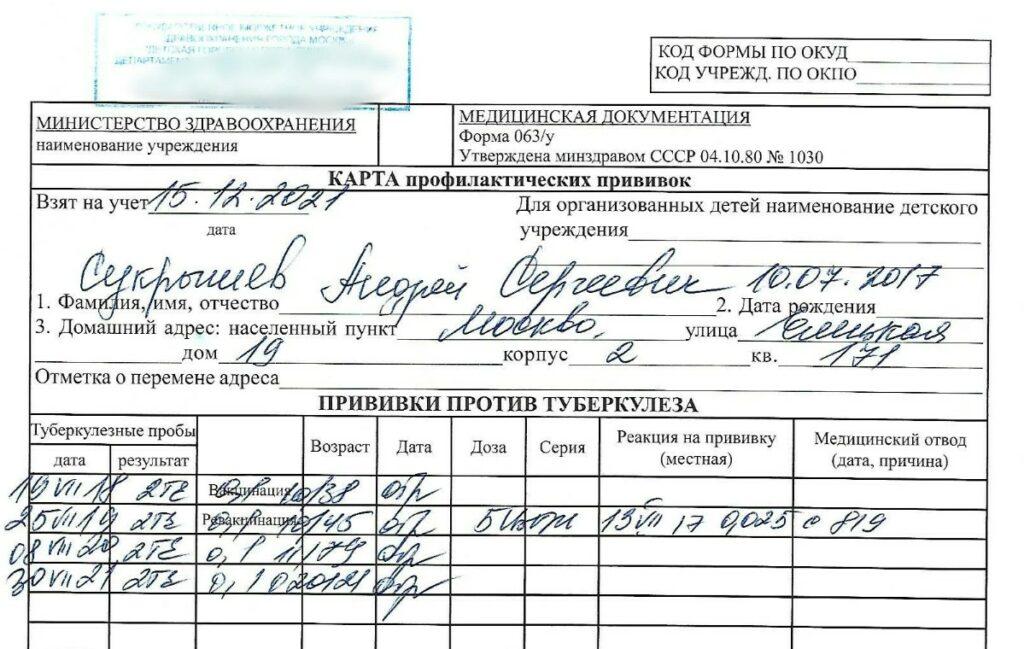 ГОСУДАРСТВЕННОЕ БЮДЖЕТНОЕ УЧРЕЖДЕНИЕ
ЗДРАВООХРАНЕНИЯ ГОРОДА МОСКВЫ
КОД ФОРМЫ ПО ОКУД
КОД УЧРЕЖД. ПО ОКПО
МИНИСТЕРСТВО ЗДРАВООХРАНЕНИЯ
наименование учреждения
МЕДИЦИНСКАЯ ДОКУМЕНТАЦИЯ
Форма 063/у
Утверждена минздравом СССР 04.10.80 № 1030
КАРТА профилактических прививок
Взят на учет 15.12.2021
дата
Для организованных детей наименование детского
учреждения
Сукрышев Андрей Сергеевич 10.07.2017
1. Фамилия, имя, отчество 2. Дата рождения
3. Домашний адрес: населенный пункт Москва, улица Елецкая
дом 19 корпус 2 кв. 171
Отметка о перемене адреса
ПРИВИВКИ ПРОТИВ ТУБЕРКУЛЕЗА
Туберкулезные пробы Возраст Дата Доза Серия Реакция на прививку (местная) Медицинский отвод (дата, причина)
дата результат
19 VII 18 2ТЕ Вакцинация отр
25 VII 19 2ТЕ Ревакцинация отр 13 VII 17 0,025 с 819
08 VII 20 2ТЕ отр
30 VII 21 2ТЕ отр